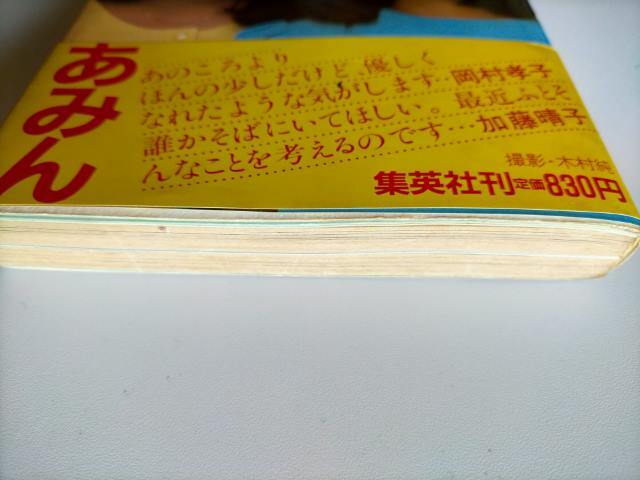 あみん
あのころより
ほんの少しだけど、優しく
なれたような気がします…岡村孝子
誰かそばにいてほしい。最近ふとそ
んなことを考えるのです…加藤晴子
撮影・木村純
集英社刊 定価830円